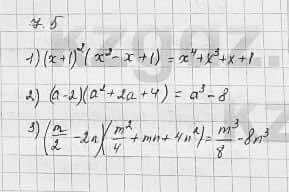 7.5
1) (x+1)²(x²-x+1) = x⁴+x³+x+1
2) (a-2)(a²+2a+4) = a³-8
3) (m/2 - 2n)(m²/4 + mn + 4n²) = m³/8 - 8n³